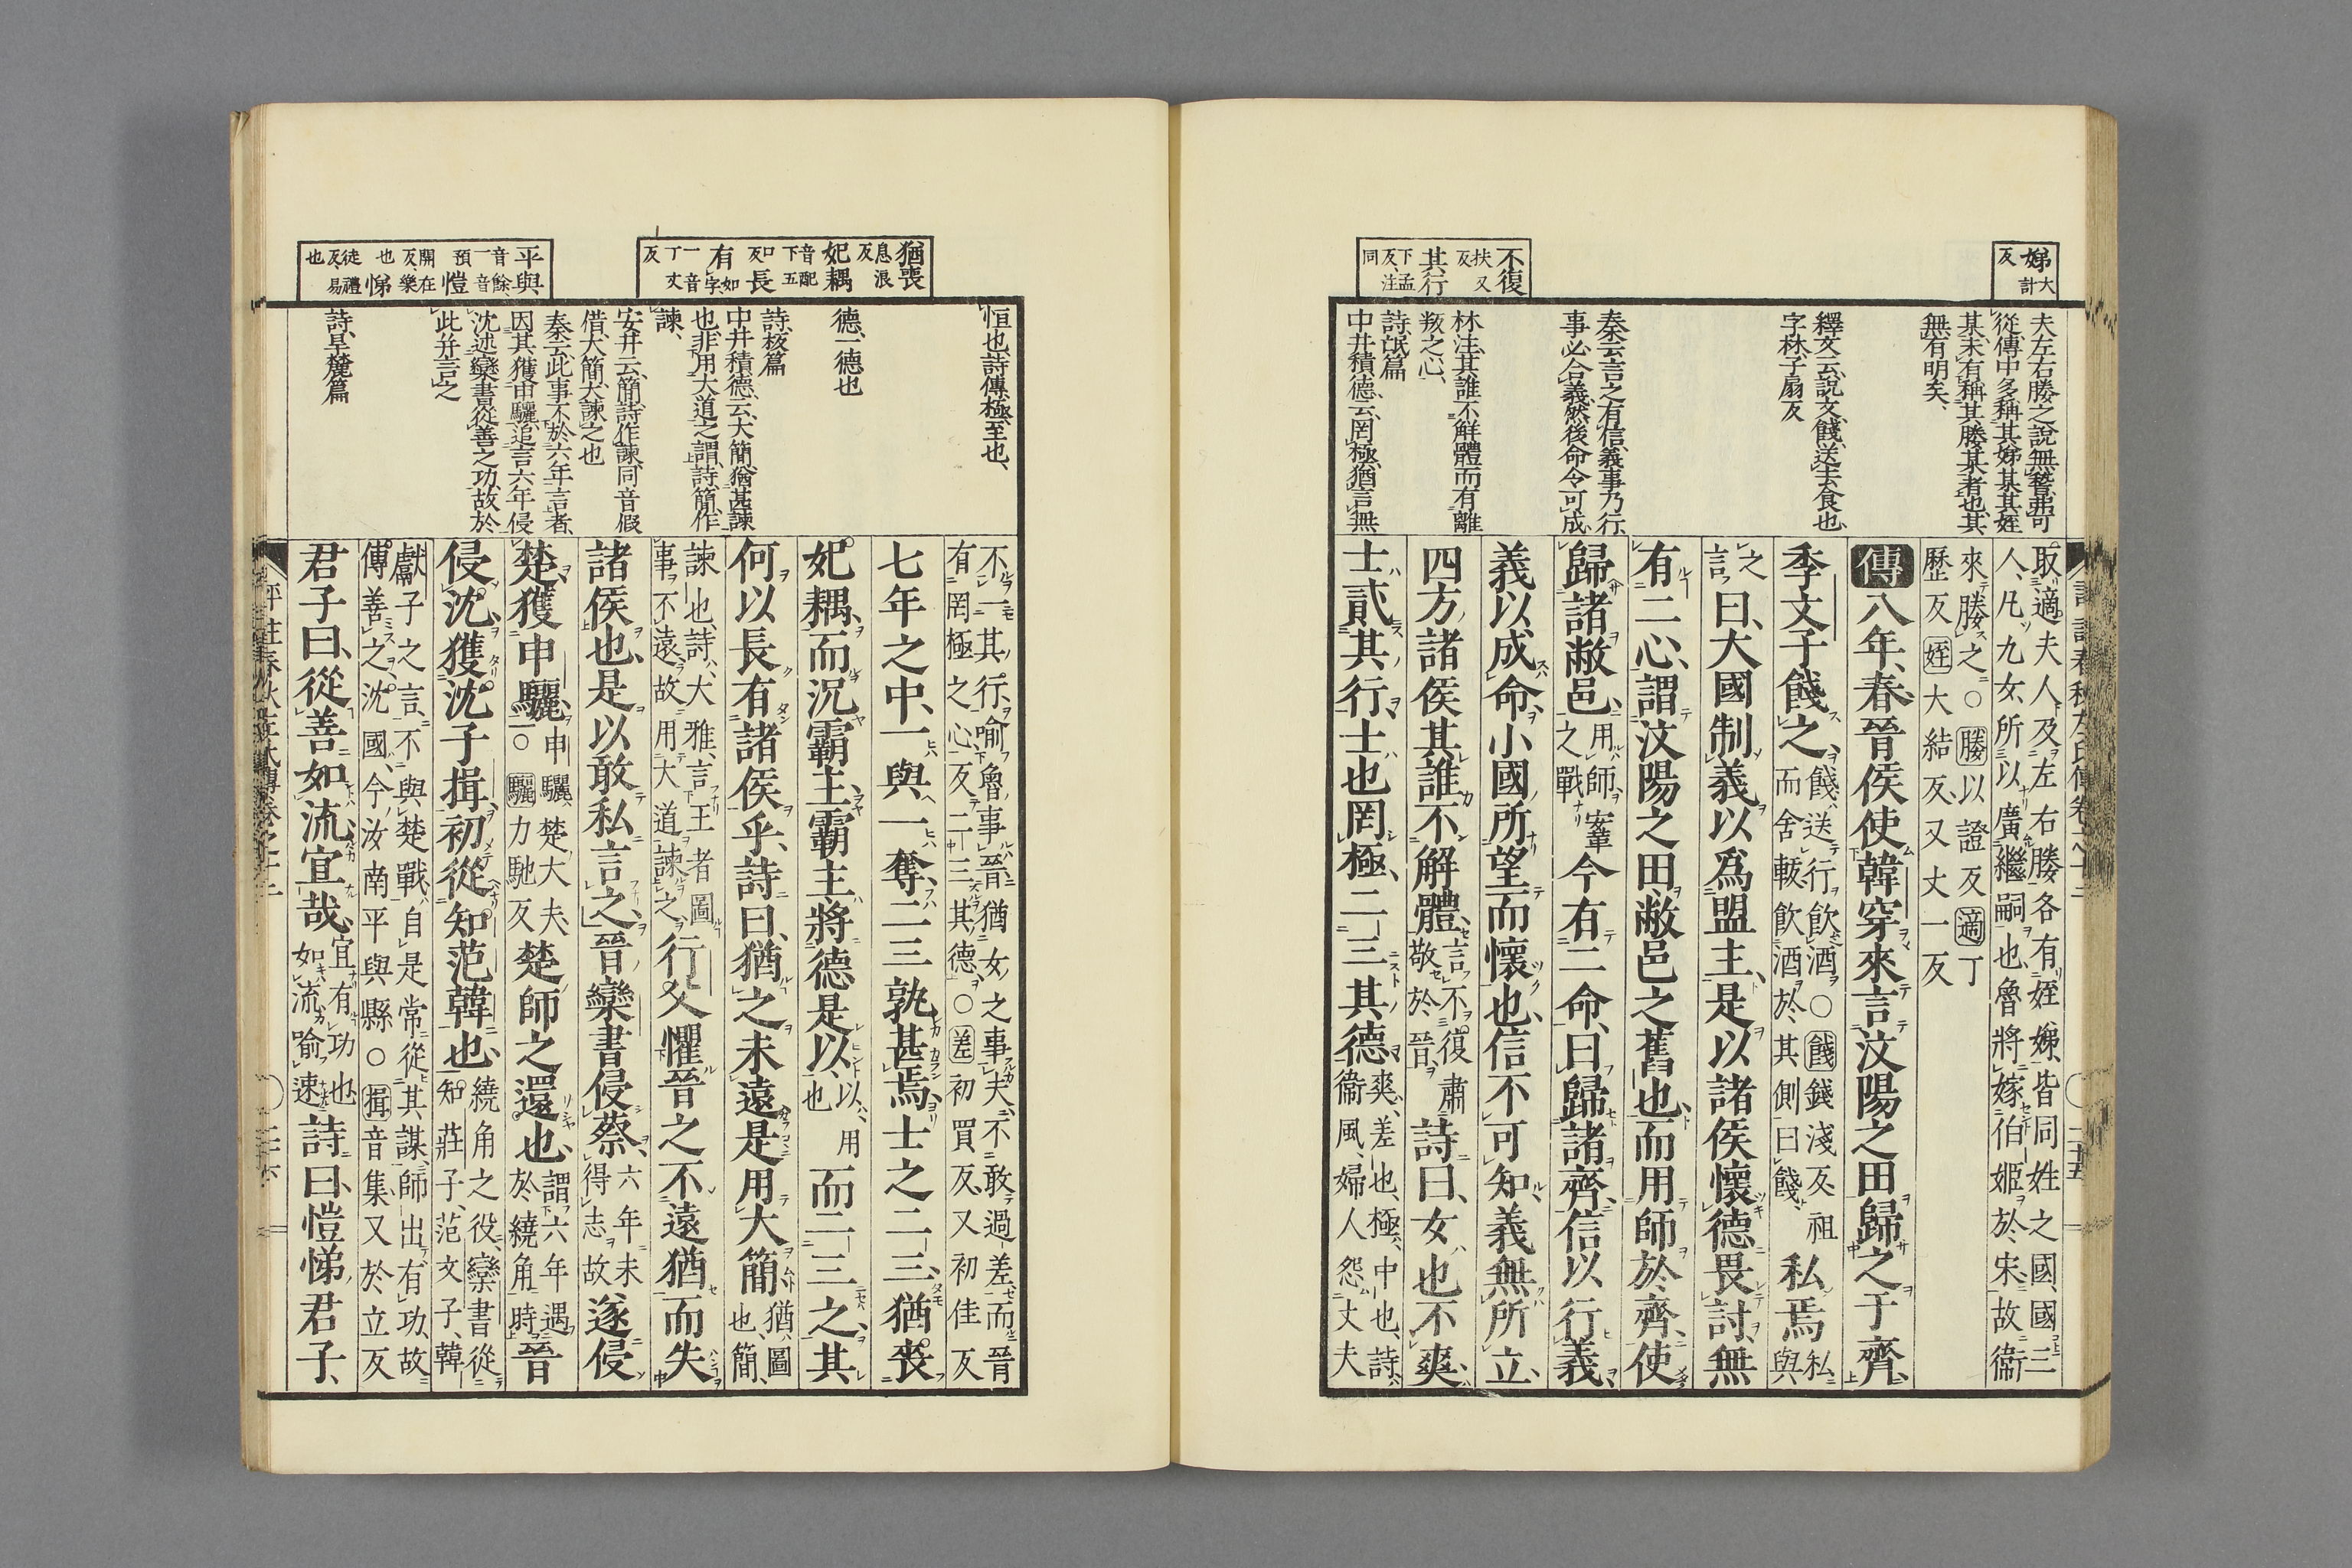 娣大計反
不復扶又反其行下孟反注同
夫左右媵之說無瞀弗可
從傳中多稱其娣某其姪
某未有稱其媵某者也其
無有明矣
釋文云說文餞送去食也
字林子扇反
秦云言之有信義事乃行
事必合義然後命令可成
林注其誰不解體而有離
叛之心
詩氓篇
中井積德云罔極猶言無
取適夫人及左右媵各有姪娣皆同姓之國國三
人凡九女所以廣繼嗣也魯將嫁伯姬於宋故衞
來媵之○媵以證反適丁
歷反姪大結反又丈一反
傳八年春晉侯使韓穿來言汶陽之田歸之于齊
季文子餞之餞送行飲酒○餞錢淺反祖
而舍軷飲酒於其側曰餞私焉私與
之言曰大國制義以爲盟主是以諸侯懷德畏討無
有二心謂汶陽之田敝邑之舊也而用師於齊使
歸諸敝邑用師鞌之戰今有二命曰歸諸齊信以行義
義以成命小國所望而懷也信不可知義無所立
四方諸侯其誰不解體言不復肅敬於晉詩曰女也不爽
士貳其行士也罔極二三其德爽差也極中也詩衞風婦人怨丈夫
猶喪息浪反妃耦音配下五口反長有如字一音丁丈反
平與音餘一音預愷開在反樂也悌徒禮反易也
恒也詩傳極至也
德一德也
詩板篇
中井積德云大簡猶甚諫
也非用大道之謂詩簡作
諫
安井云簡詩作諫同音假
借大簡大諫之也
秦云此事不於六年言者
因其獲申驪追言六年侵
沈述欒書從善之功故於
此并言之
詩旱麓篇
不一其行喻魯事晉猶女之事夫不敢過差而晉
有罔極之心反二三其德○差初買反又初佳反
七年之中一與一奪二三孰甚焉士之二三猶喪
妃耦而況霸主霸主將德是以以用也而二三之其
何以長有諸侯乎詩曰猶之未遠是用大簡猶圖也簡
諫也詩大雅言王者圖
事不遠故用大道諫之行父懼晉之不遠猶而失
諸侯也是以敢私言之晉欒書侵蔡六年未得志故遂侵
楚獲申驪申驪楚大夫○驪力馳反楚師之還也謂六年遇於繞角時晉
侵沈獲沈子揖初從知范韓也繞角之役欒書從知莊子范文子韓
獻子之言不與楚戰自是常從其謀師出有功故
傳善之沈國今汝南平與縣○揖音集又於立反
君子曰從善如流宜哉宜有功也如流喻速詩曰愷悌君子